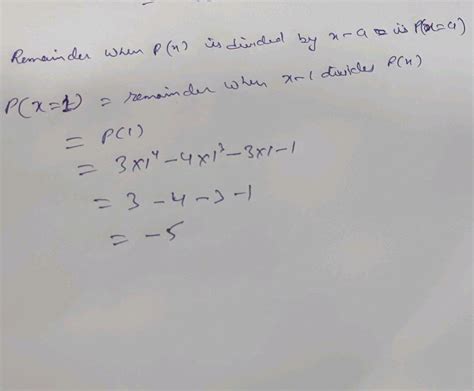 Remainder when P(x) is divided by x-a is P(x=a)
P(x=1) = remainder when x-1 divides P(x)
= P(1)
= 3x1⁴-4x1³-3x1-1
= 3-4-3-1
= -5